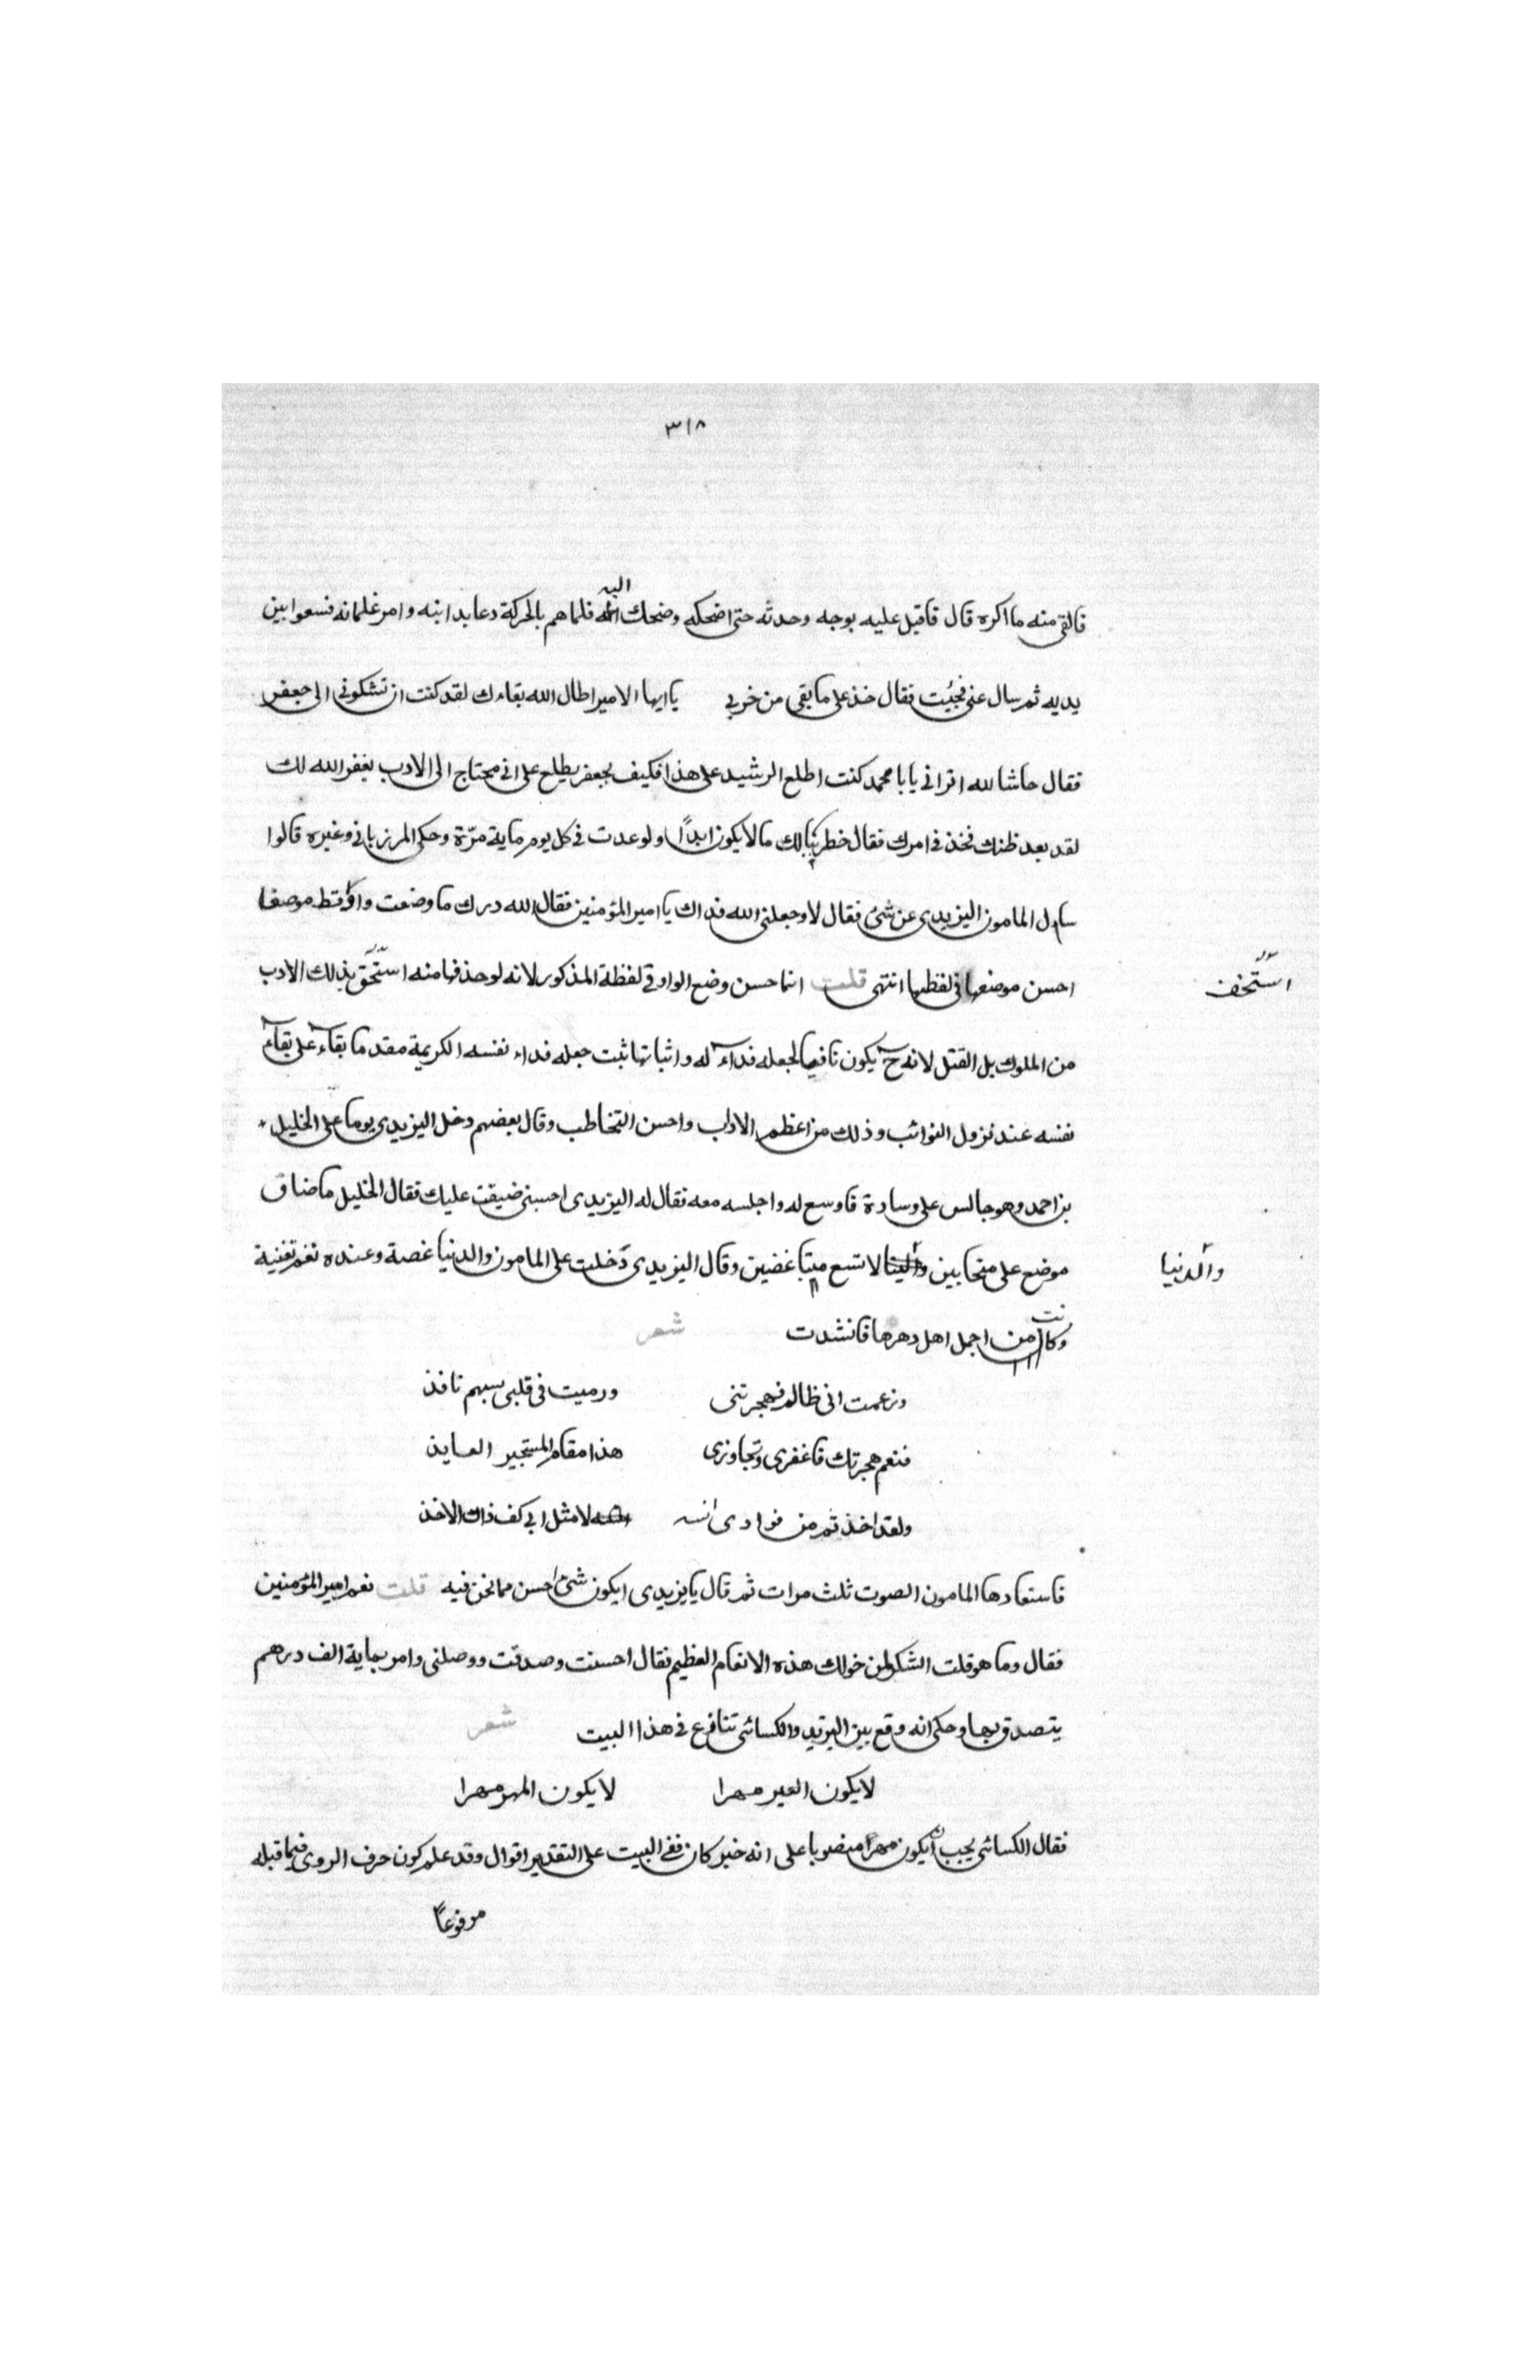 ٣١٨
فالقى منه ما اكره قال فاقبل عليه بوجه وحدثه حتى اضحكه وضحك اليه فلما هم بالحركة دعا بدابته وامر غلمانه فسعوا بين
يديه ثم سال عنى فجئيت فقال خذ على ما بقى من خربى يا ايها الامير اطال الله بقاءك لقد كنت ان تشكونى الى جعفر
فقال حاشا لله اترانى يابا محمد كنت اطلع الرشيد على هذا فكيف بجعفر يطلع على انى محتاج الى الادب يغفر الله لك
لقد بعد ظنك فخذ فى امرك فقال خطر ببالك ما لا يكون ابدًا ولو عدت فى كل يوم ماية مرّة وحكى المرزبانى وغيره قالوا
سأل المامون اليزيدى عن شئ فقال لا وجعلنى الله فداك يا امير المؤمنين فقال لله درك ما وضعت واو قط موضعا
احسن موضعها فى لفظها انتهى قلت انما حسن وضع الواو فى لفظة المذكور لانه لو حذفها منه استحق بذلك الادب
استخف
من الملوك بل القتل لانه ح يكون نافيا لجعله فداءً له واثباتها ثبت جعله فداء نفسه الكريمة مقدما بقاءه على بقاء
نفسه عند نزول النوائب وذلك من اعظم الاداب واحسن التخاطب وقال بعضهم دخل اليزيدى يوما على الخليل
بن احمد وهو جالس على وسادة فاوسع له واجلسه معه فقال له اليزيدى احسبنى ضيقت عليك فقال الخليل ما ضاق
موضع على متحابين لا تسع متباغضين وقال اليزيدى دخلت على المامون والدنيا غضة وعنده نغم تغنية
والدنيا
وكانت من اجمل اهل دهرها فانشدت شعر
وزعمت انى ظالم فهجرتنى ورميت فى قلبى بسهم نافذ
فنعم هجرتك فاغفرى وتجاوزى هذا مقام المستجير العايذ
ولقد اخذتم من فوادى انسه لا مثل ابى كف ذاك الاخذ
فاستعادها المامون الصوت ثلث مرات ثم قال يا يزيدى ايكون شئ احسن مما نحن فيه قلت نعم امير المؤمنين
فقال وما هو قلت الشكر لمن خولك هذه الانعام العظيم فقال احسنت وصدقت ووصلنى وامر بماية الف درهم
يتصدق بها وحكى انه وقع بين اليزيد والكسائى تنازع فى هذا البيت شعر
لا يكون العير مهرا لا يكون المهر مهرا
فقال الكسائى يجب ان يكون مهرا منصوبا على انه خبر كان ففى البيت على التقدير اقوال وقد علم كون حرف الروى فيما قبله
مرفوعاً